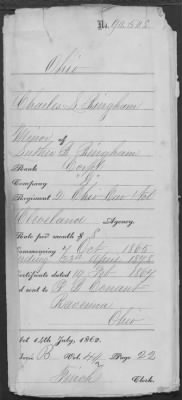 No. 98.508
Ohio
Charles S. Bingham
Minor of
Luther B. Bingham
Rank Corpl
Company
Regiment 2 Ohio Cav Vol
Cleveland Agency.
Rate per month $ 8
Commencing 7 Oct 1865
Ending 23d April 1878
Certificate dated 19 1867
and sent to P. B. Conant
Ravenna
Ohio
Act 14th July, 1862.
Book B Vol. 4 Page 22
Finch Clerk.